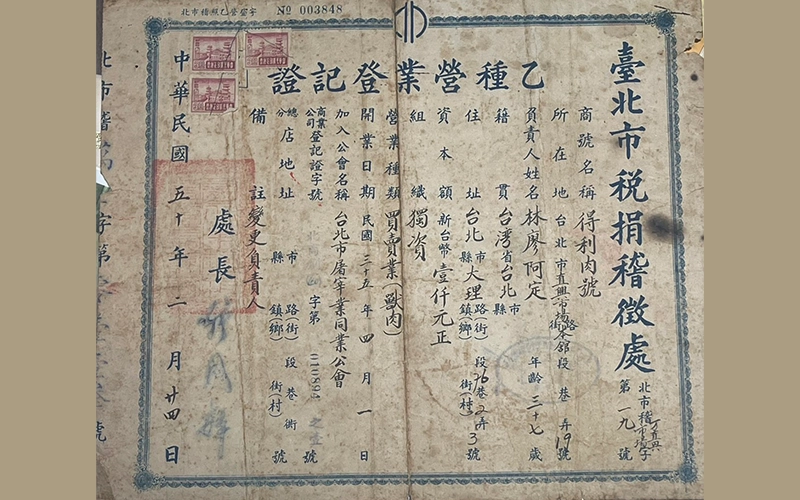 北市稽照乙營登字 № 003848
臺北市稅捐稽徵處
北市稽 字
第一九號
乙種營業登記證
商號名稱 得利肉號
所在地 台北市直興市場 路街 段 巷 弄 19號
負責人姓名 林廖阿定 年齡 三十七歲
籍貫 台灣省台北縣市
住址 台北縣市 大理路(街)鎮(鄉) 段76巷2弄3號 街(村)
資本額 新台幣壹仟元正
組織 獨資
營業種類 買賣業(獸肉)
開業日期 民國三十五年四月一日
加入公會名稱 台北市屠宰業同業公會
商業公司登記證字號 字第 010894 之 號
總分店地址 縣市 路(街)鎮(鄉) 段巷衖街(村) 號
備註 變更負責人
處長
中華民國五十年二月廿四日
北市稽 字第 號